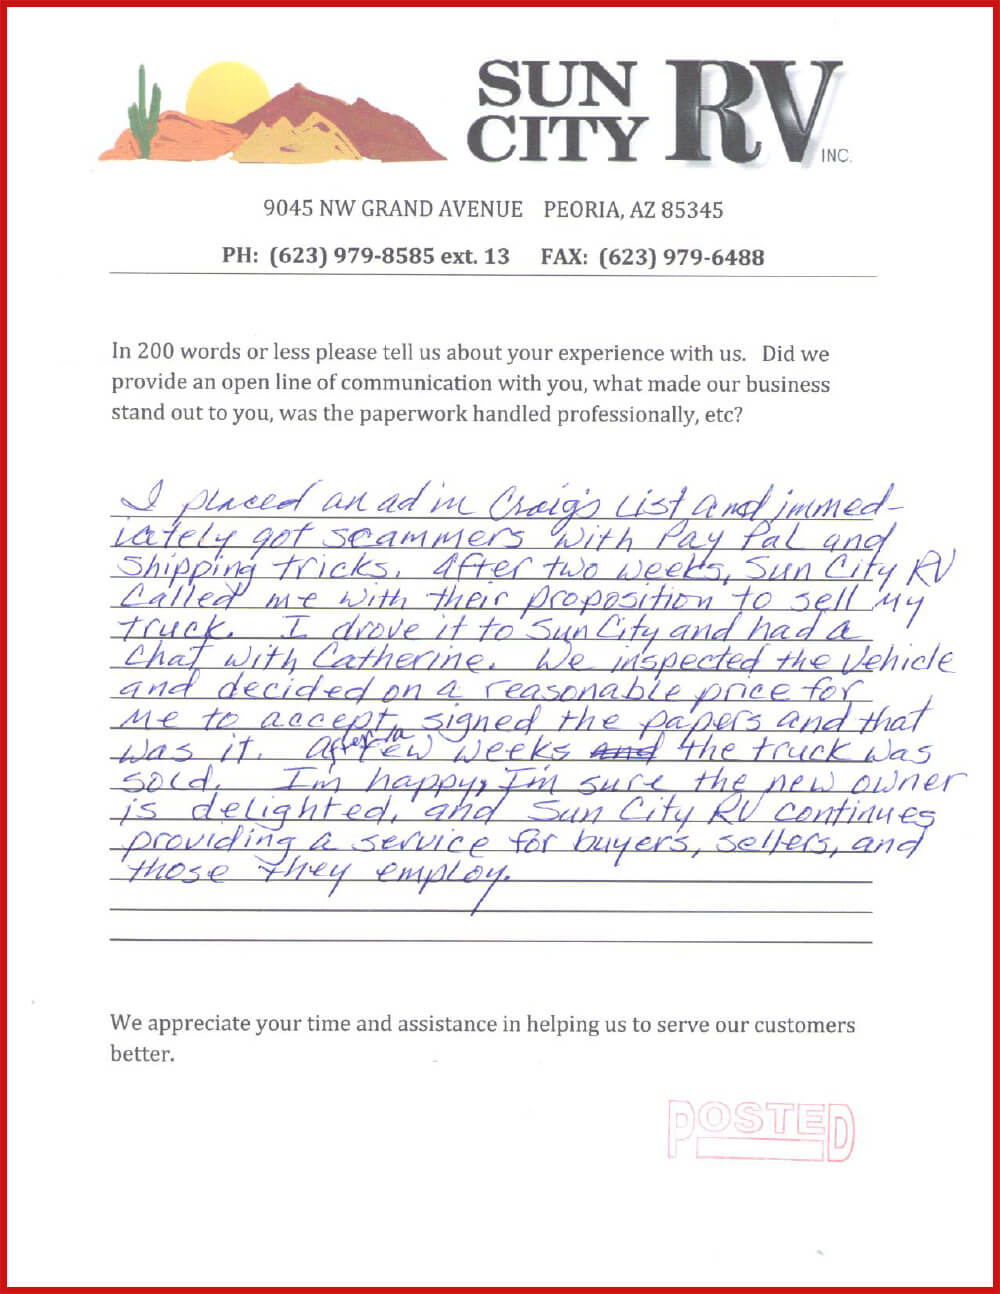 SUN
CITY RV INC.
9045 NW GRAND AVENUE PEORIA, AZ 85345
PH: (623) 979-8585 ext. 13 FAX: (623) 979-6488
In 200 words or less please tell us about your experience with us. Did we
provide an open line of communication with you, what made our business
stand out to you, was the paperwork handled professionally, etc?
I placed an ad in Craig's List and immed-
iately got scammers with Pay Pal and
Shipping tricks. After two weeks, Sun City RV
Called me with their proposition to sell My
truck. I drove it to Sun City and had a
Chat with Catherine. We inspected the Vehicle
and decided on a reasonable price for
Me to accept, signed the papers and that
was it. After a few weeks and the truck was
sold. I'm happy, I'm sure the new owner
is delighted, and Sun City RV continues
providing a service for buyers, sellers, and
those they employ.
We appreciate your time and assistance in helping us to serve our customers
better.
POSTED